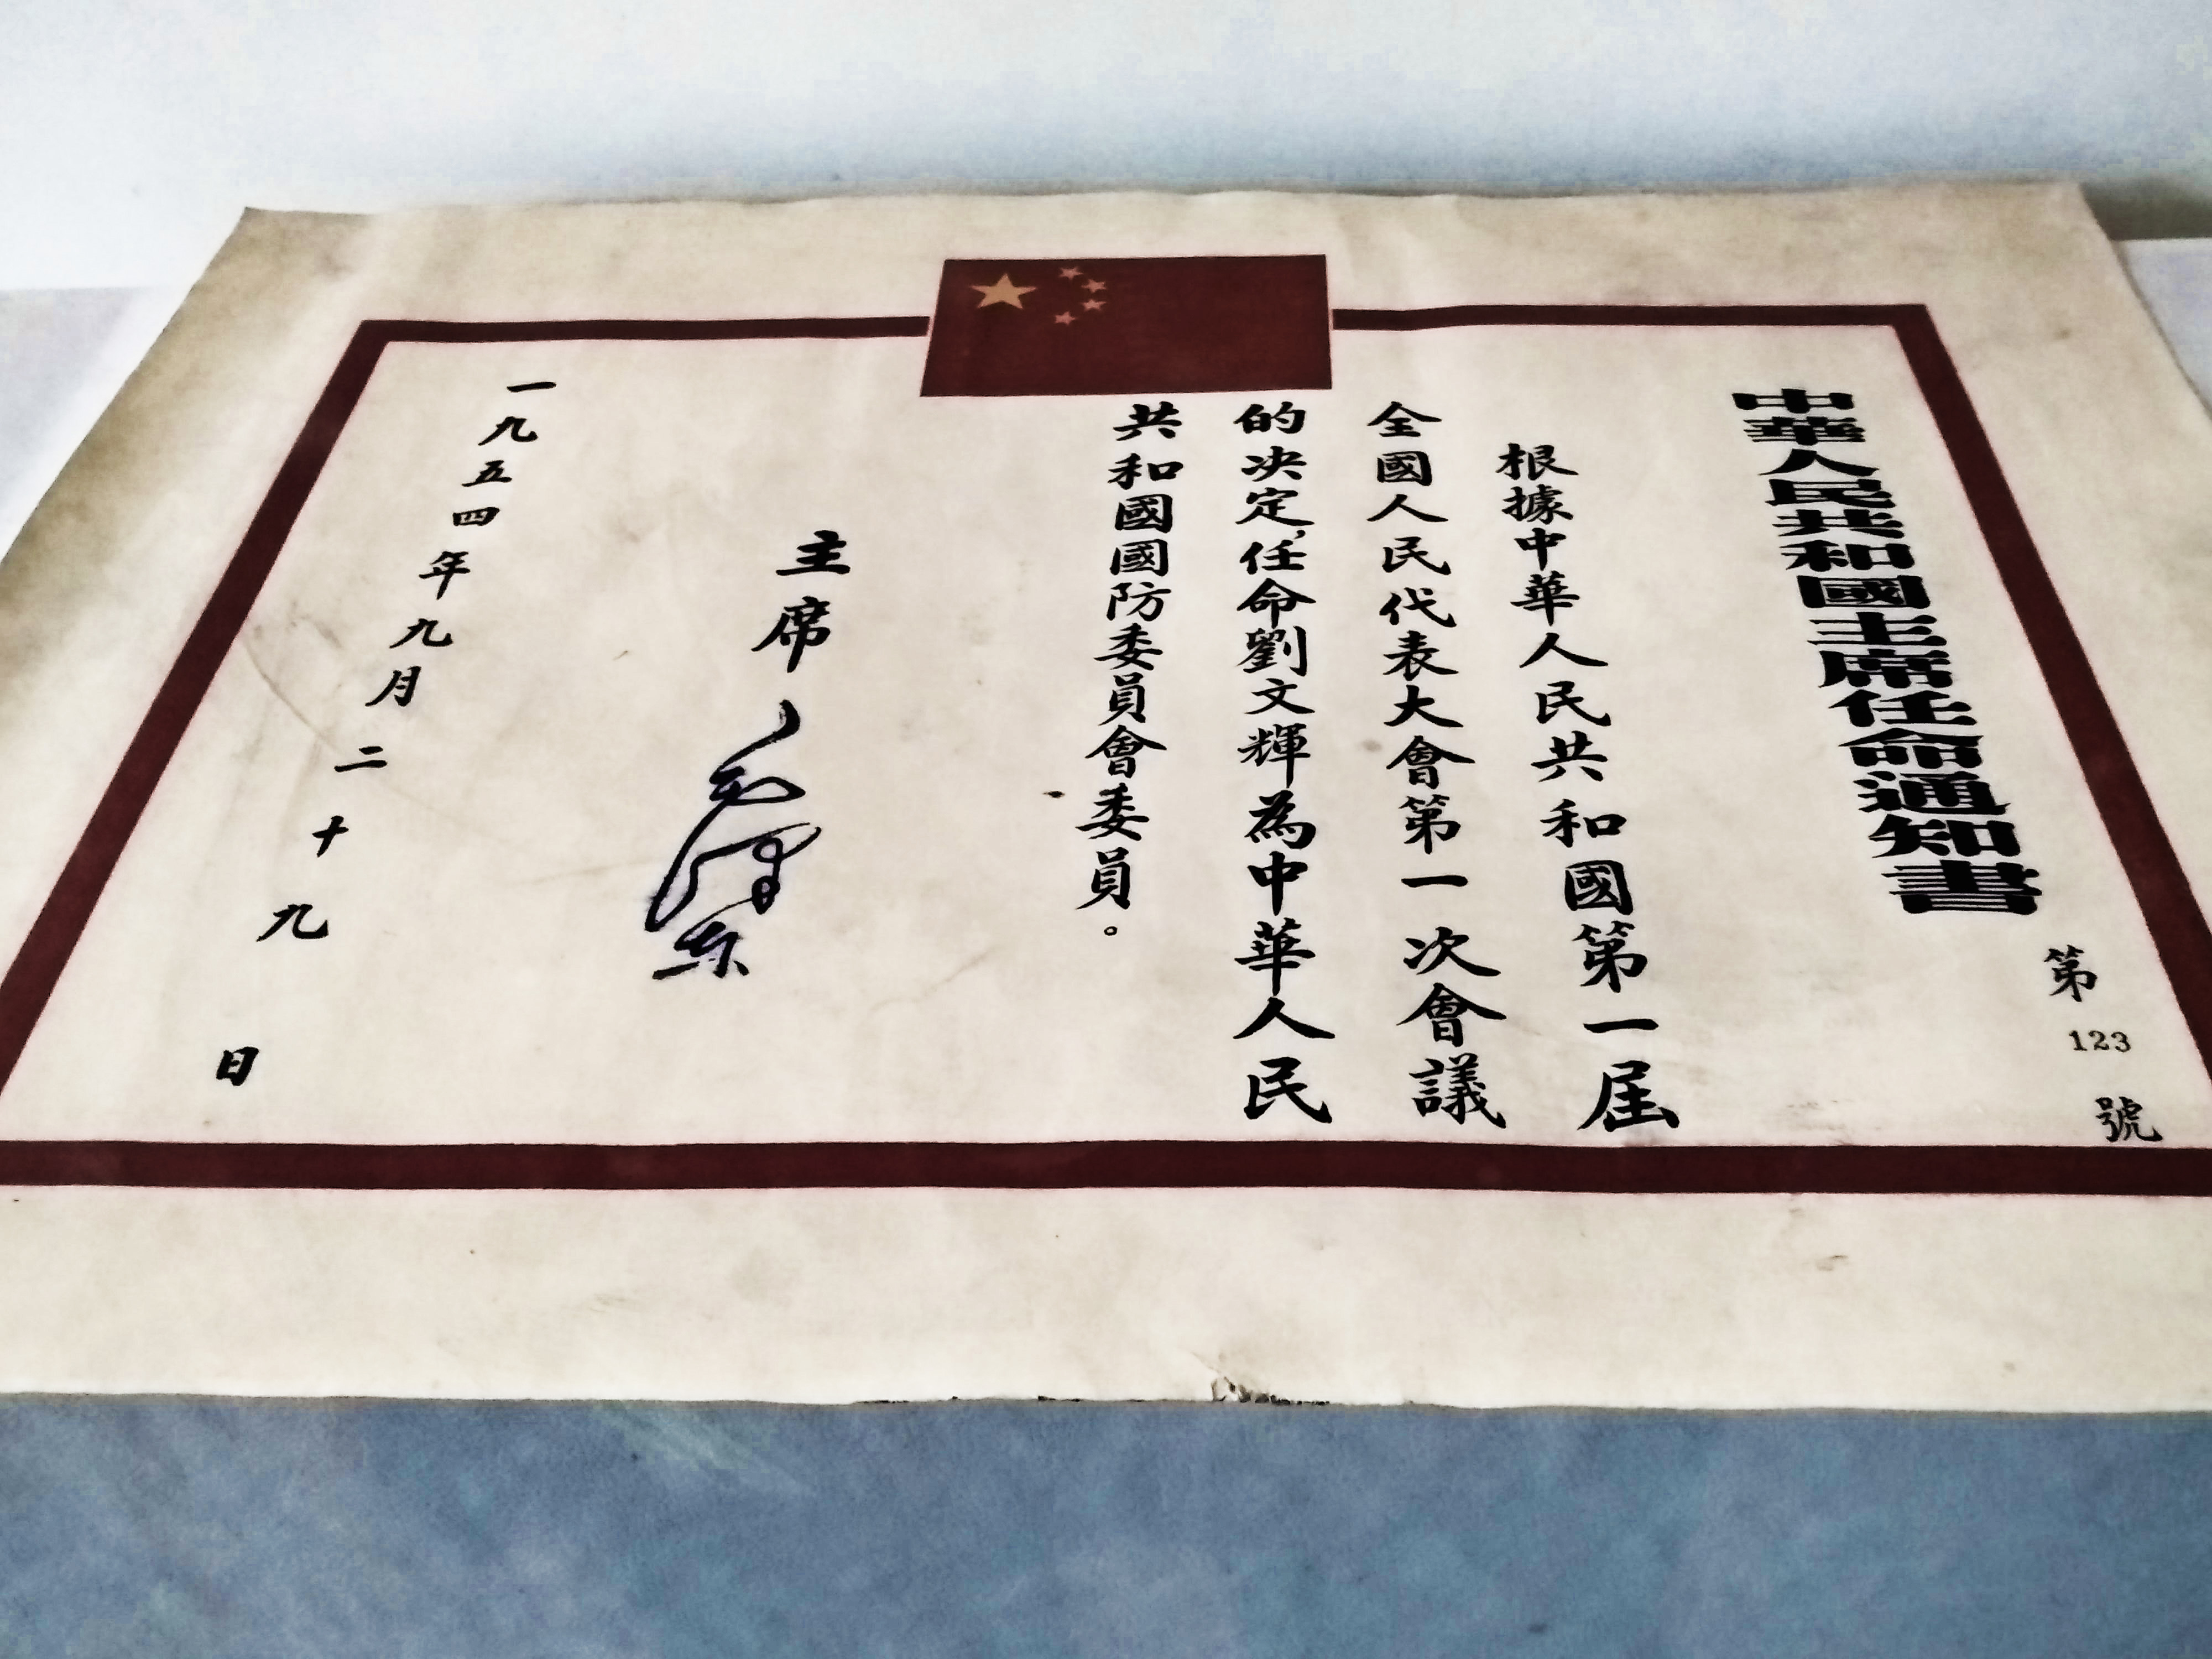 中華人民共和國主席任命通知書
第123號
根據中華人民共和國第一屆
全國人民代表大會第一次會議
的决定，任命劉文輝為中華人民
共和國國防委員會委員。
主席 毛澤东
一九五四年九月二十九日